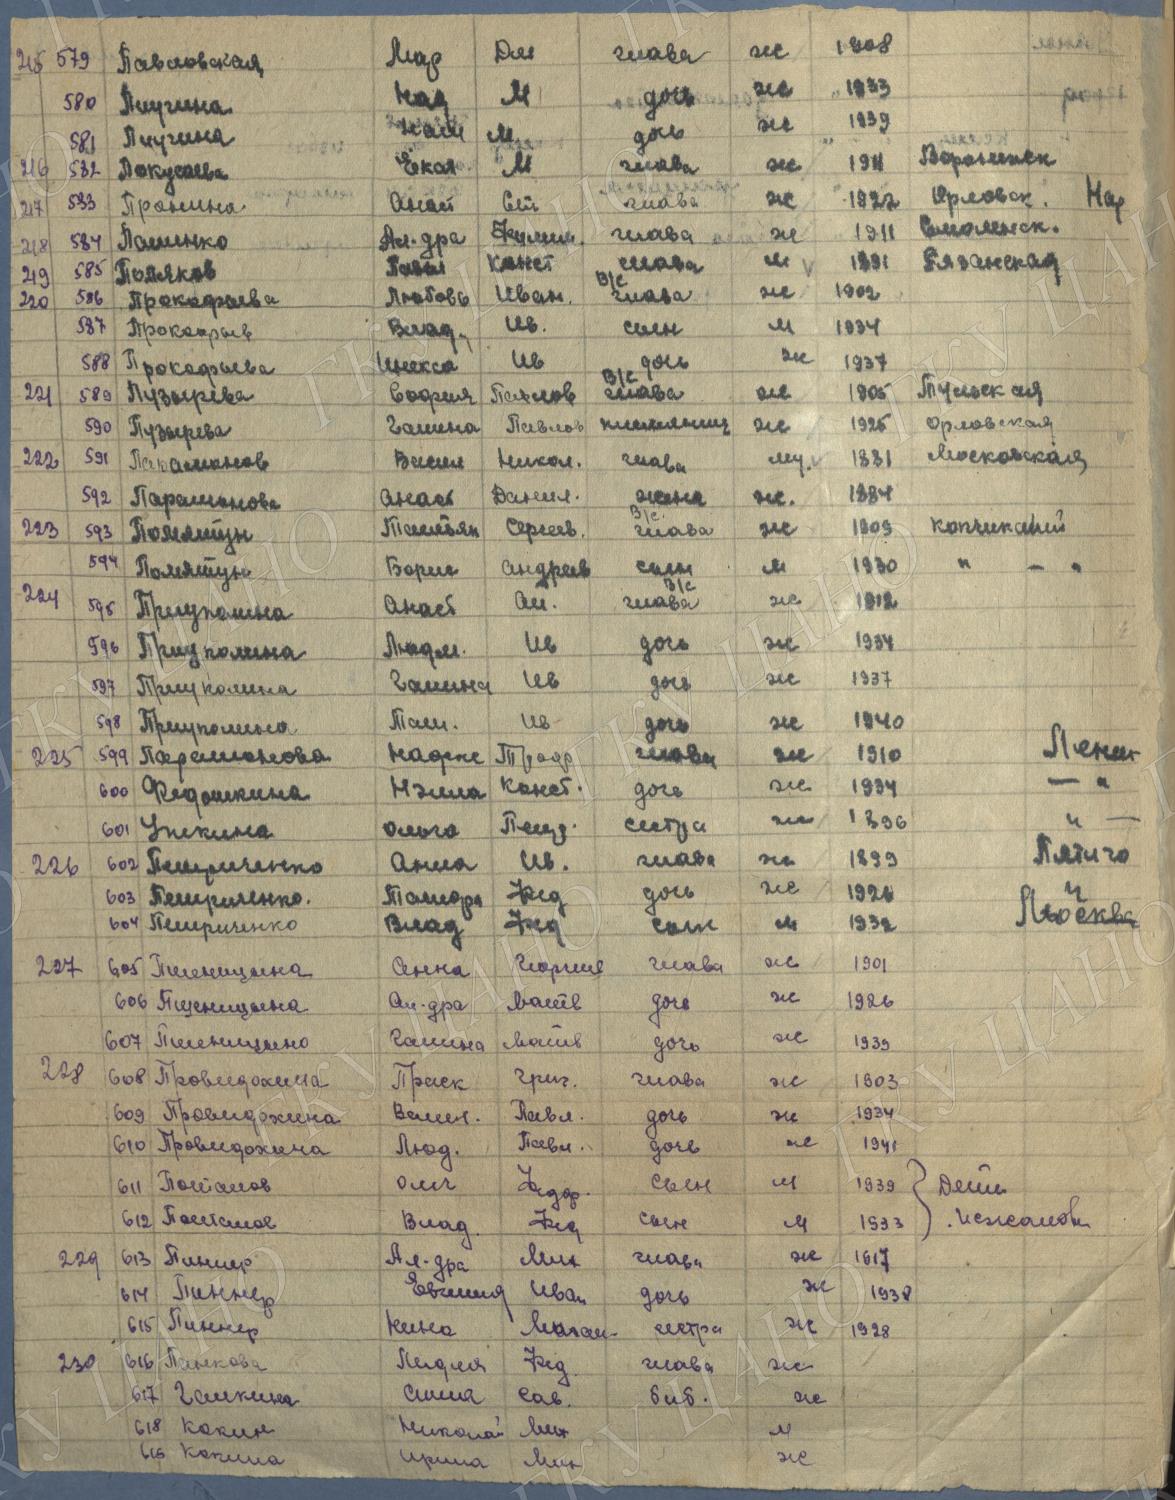 215 579 Павловская Мар Дм глава ж 1908
580 Пичугина Над М дочь ж 1933
581 Пичугина М дочь ж 1939
216 582 Покусаева Екат М глава ж 1911 Воронежск
217 583 Пронина Анаст Ст глава ж 1922 Орловск. Нар
218 584 Пашенко Ал-дра глава ж 1911 Смоленск.
219 585 Поляков Павел Конст глава м 1891 Рязанская
220 586 Прокофьева Любовь Иван. в/с глава ж 1902
587 Прокофьев Влад. Ив. сын м 1934
588 Прокофьева Инесса Ив дочь ж 1937
221 589 Пузырева София Павлов в/с глава ж 1905 Тульская
590 Пузырева Галина Павлов ж 1925 Орловская
222 591 Парамонов Васил Никол. глава му. 1881 Московская
592 Парамонова Анаст Данил. жена ж. 1884
223 593 Татьян Сергеев. в/с глава ж 1909
594 Борис Андреев сын м 1930 " — "
224 595 Анаст Ал. в/с глава ж 1912
596 Людм. Ив дочь ж 1934
597 Галина Ив дочь ж 1937
598 Ив дочь ж 1940
225 599 Парамонова Трофр глава ж 1910 Ленин
600 Федошкина Нэлла Конст. дочь ж 1934 — "
601 Ольга сестра ж 1896 " —
226 602 Петриченко Анна Ив. глава ж 1899 Пятиго
603 Петриченко. Тамара Фед дочь ж 1926 "
604 Петриченко Влад Фед сын м 1932 Москва
227 605 Пшеницына Анна Георгие глава ж 1901
606 Пшеницына Ал-дра Матв дочь ж 1926
607 Пшеницына Галина Матв дочь ж 1939
228 608 Провидохина Праск Григ. глава ж 1903
609 Провидохина Вален. Павл. дочь ж 1934
610 Провидохина Люд. Павл. дочь ж 1941
611 Потапов Олег Федор. сын м 1939 Дети
612 Потапов Влад. Фед сын м 1933
229 613 Пиннер Ал-дра Мих глава ж 1917
614 Пиннер Евгения Иван дочь ж 1938
615 Пиннер Нина Михаил. сестра ж 1928
230 616 Панкова Лидия Фед. глава ж
617 Галкина Сав. ж
618 Кокин Николай Мих м
619 Кокина Ирина Мих ж
ГКУ ЦАНО